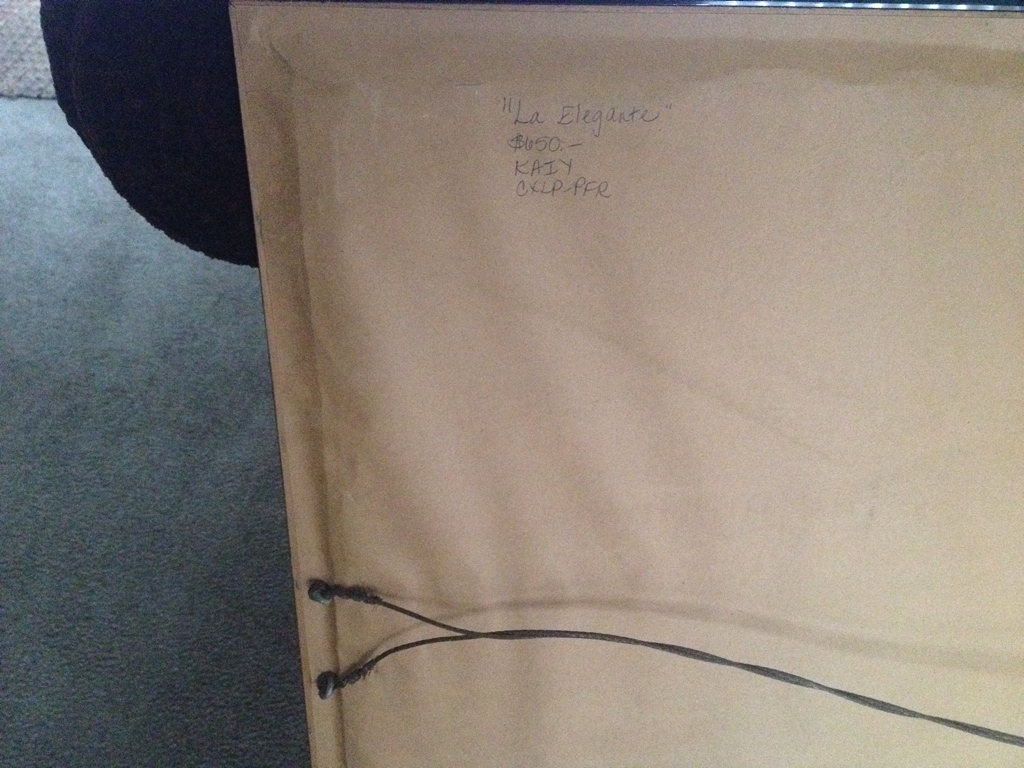 "La Elegante"
$650.-
KAIY
CXLP-PFR